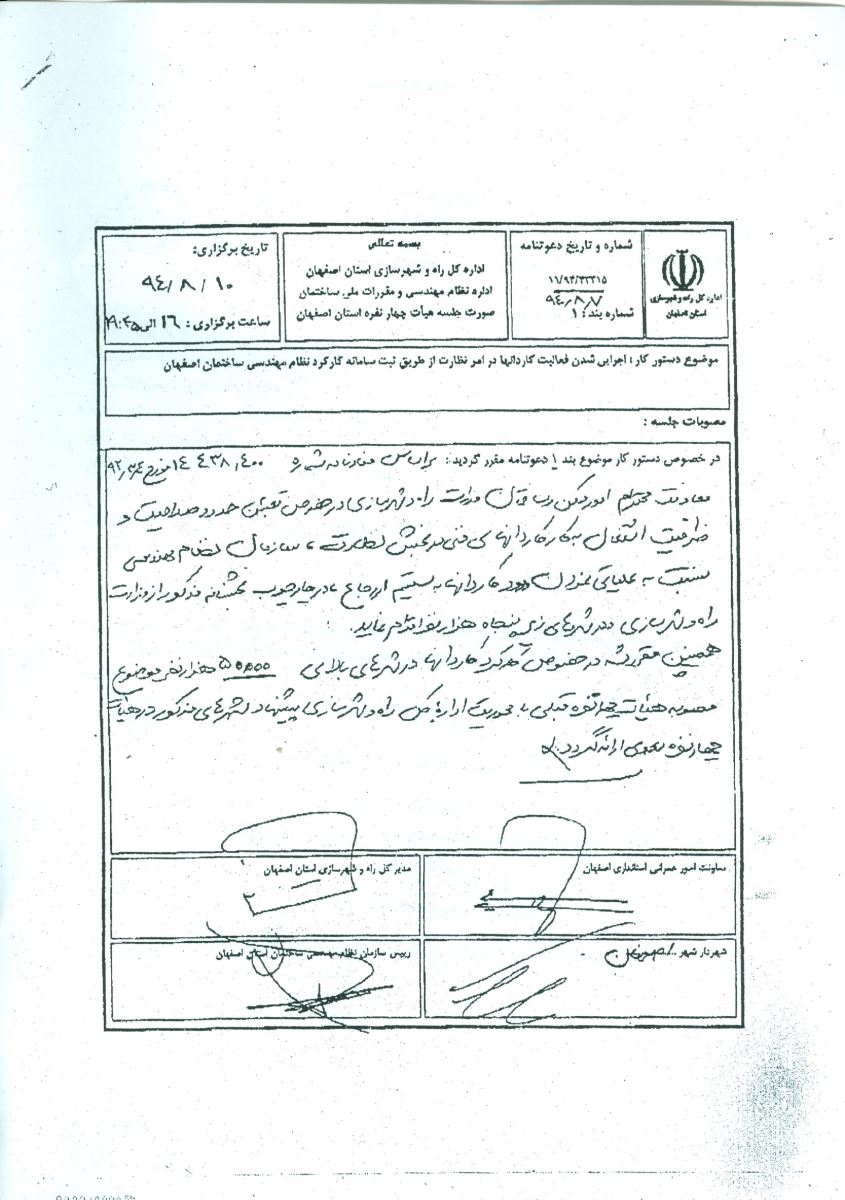 اداره کل راه و شهرسازی
استان اصفهان
شماره و تاریخ دعوتنامه
۱۱/۹۴/۳۳۲۱۵
۹۴/۸/۷
شماره بند : ۱
بسمه تعالی
اداره کل راه و شهرسازی استان اصفهان
اداره نظام مهندسی و مقررات ملی ساختمان
صورت جلسه هیأت چهار نفره استان اصفهان
تاریخ برگزاری:
۹۴/۸/۱۰
ساعت برگزاری : ۱۶ الی ۱۹:۴۵
موضوع دستور کار : اجرایی شدن فعالیت کاردانها در امر نظارت از طریق ثبت سامانه کارکرد نظام مهندسی ساختمان اصفهان
مصوبات جلسه :
در خصوص دستور کار موضوع بند ۱ دعوتنامه مقرر گردید : براساس مفاد نامه شماره ۴۰۰/۴۳۸۱۴ مورخ
معاونت محترم امور مسکن و ساختمان وزارت راه و شهرسازی در خصوص تعیین حدود صلاحیت و
ظرفیت اشتغال به کار کاردانهای فنی در بخش نظارت ، سازمان نظام مهندسی
نسبت به عملیاتی نمودن ورود کاردانها به سیستم ارجاع کار در چارچوب بخشنامه مذکور از وزارت
راه و شهرسازی در شهرهای زیر پنجاه هزار نفر اقدام نماید.
همچنین مقرر شد در خصوص کارکرد کاردانها در شهرهای بالای ۵۰،۰۰۰ هزار نفر موضوع
مصوبه هیأت چهار نفره قبلی با محوریت اداره کل راه و شهرسازی پیشنهاد شهرهای مذکور در هیأت
چهار نفره بعدی ارائه گردد.
معاونت امور عمرانی استانداری اصفهان
مدیر کل راه و شهرسازی استان اصفهان
شهردار شهر ... اصفهان
رییس سازمان نظام مهندسی ساختمان استان اصفهان